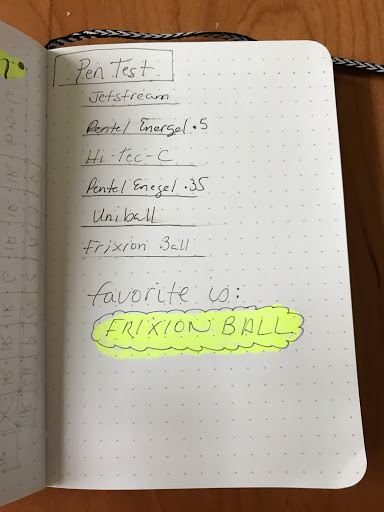 Pen Test
Jetstream
Pentel Energel .5
Hi-Tec-C
Pentel Enegel .35
Uniball
Frixion Ball
favorite is:
FRIXION BALL